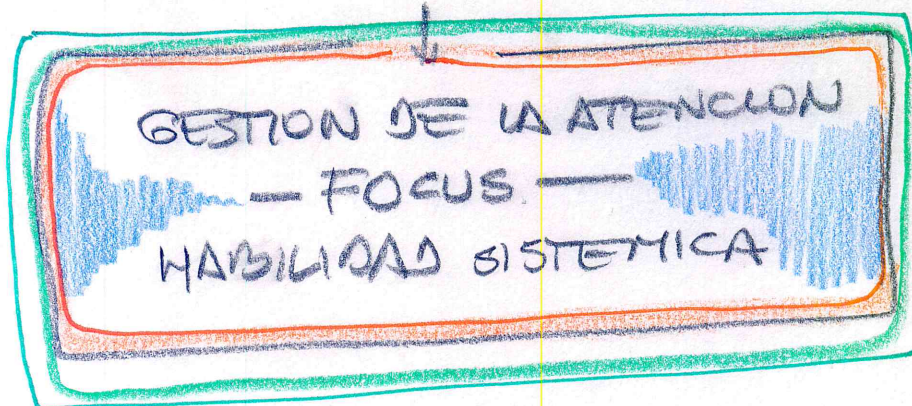 GESTION DE LA ATENCION
— FOCUS —
HABILIDAD SISTEMICA